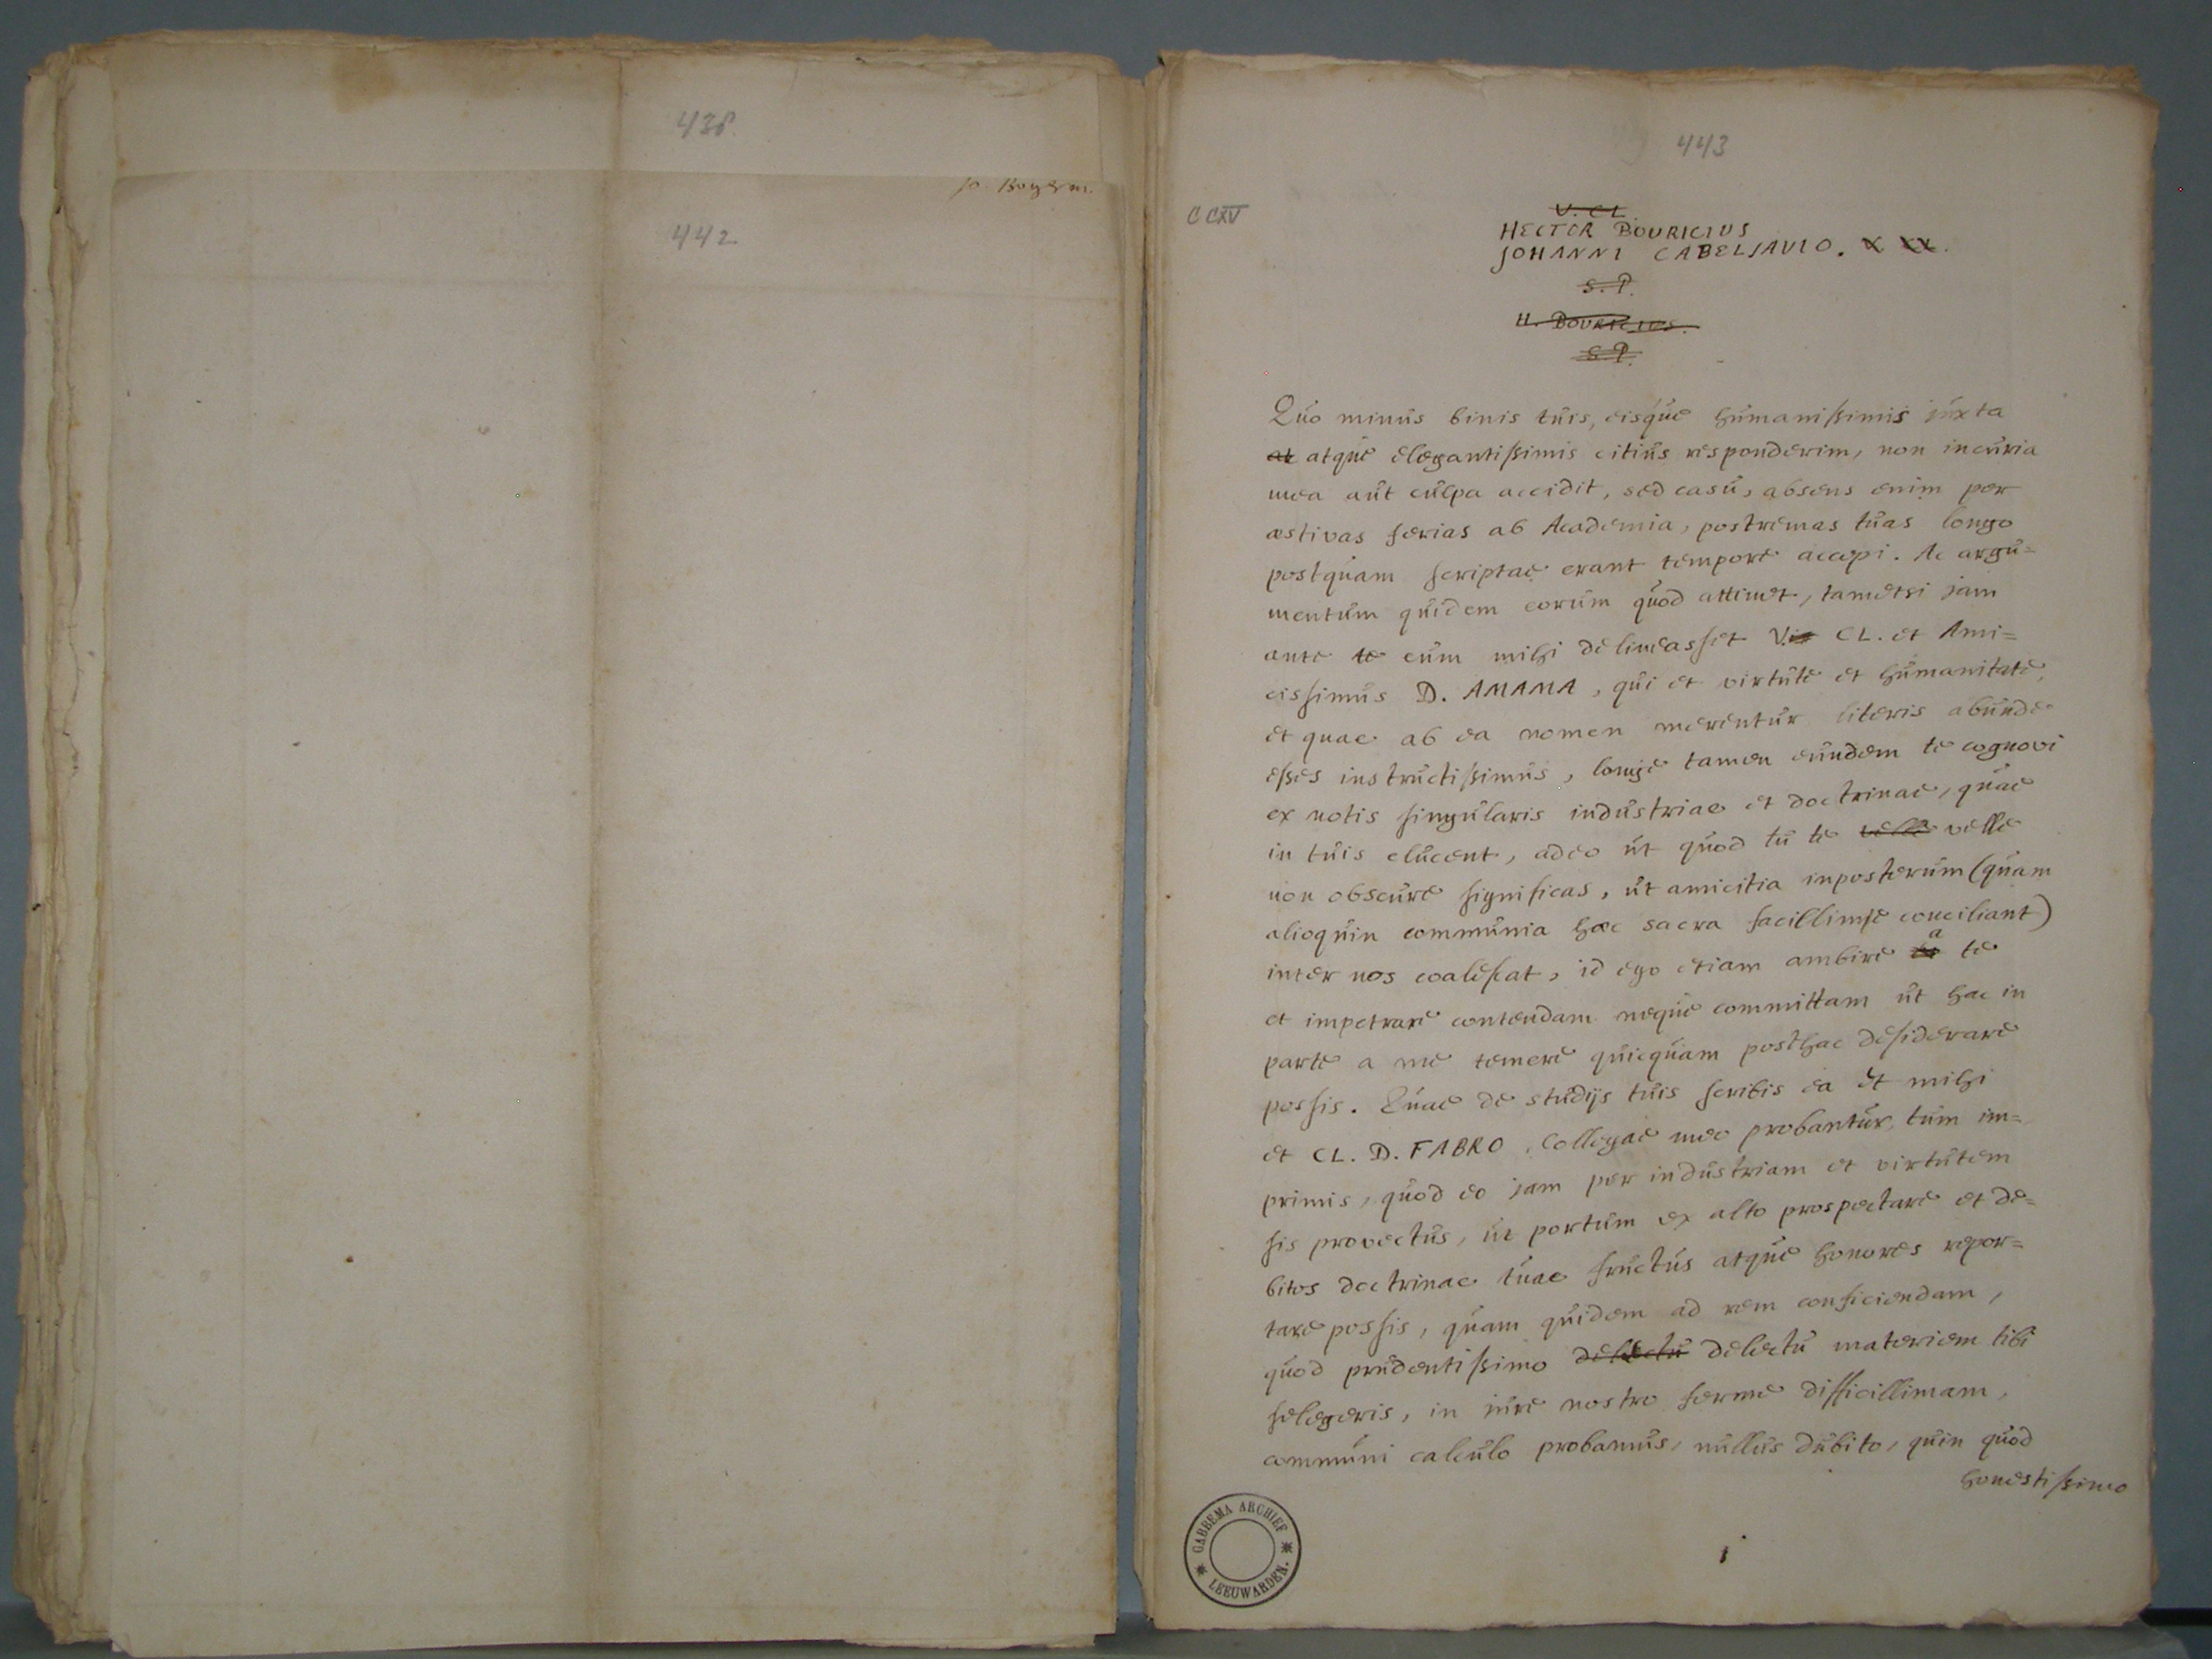 438.
Jo. Bogerm.
442.
443
CCXV
V. CL.
HECTOR BOURICIUS
JOHANNI CABELJAVIO.
S. P.
H. BOURICIUS.
S. P.
Quo minus binis tuis, eisque humanissimis juxta
at atque elegantissimis citius responderim, non incuria
mea aut culpa accidit, sed casu, absens enim per
æstivas ferias ab Academia, postremas tuas longo
postquam scriptae erant tempore accepi. Ac argu=
mentum quidem eorum quod attinet, tametsi jam
ante te eum mihi delineasset V. CL. et Ami=
cissimus D. AMAMA, qui et virtute et humanitate,
et quae ab ea nomen merentur literis abunde
esses instructissimus, longe tamen eundem te cognovi
ex notis singularis industriae et doctrinae, quae
in tuis elucent, adeo ut quod tu te velle velle
non obscure significas, ut amicitia inposterum (quam
alioquin communia hæc sacra facillime conciliant)
inter nos coalescat, id ego etiam ambire a te
et impetrare contendam neque committam ut hac in
parte a me temere quicquam posthac desiderare
possis. Quae de studijs tuis scribis ea et mihi
et CL. D. FABRO, Collegae meo probantur, tum im=
primis, quod eo jam per industriam et virtutem
sis provectus, ut portum ex alto prospectare et de=
bitos doctrinae tuae fructus atque honores repor=
tare possis, quam quidem ad rem conficiendam,
quod prudentissimo delectu delectu materiem tibi
selegeris, in jure nostro ferme difficillimam,
communi calculo probamus, nullus dubito, quin quod
honestissimo
GABBEMA ARCHIEF
LEEUWARDEN.